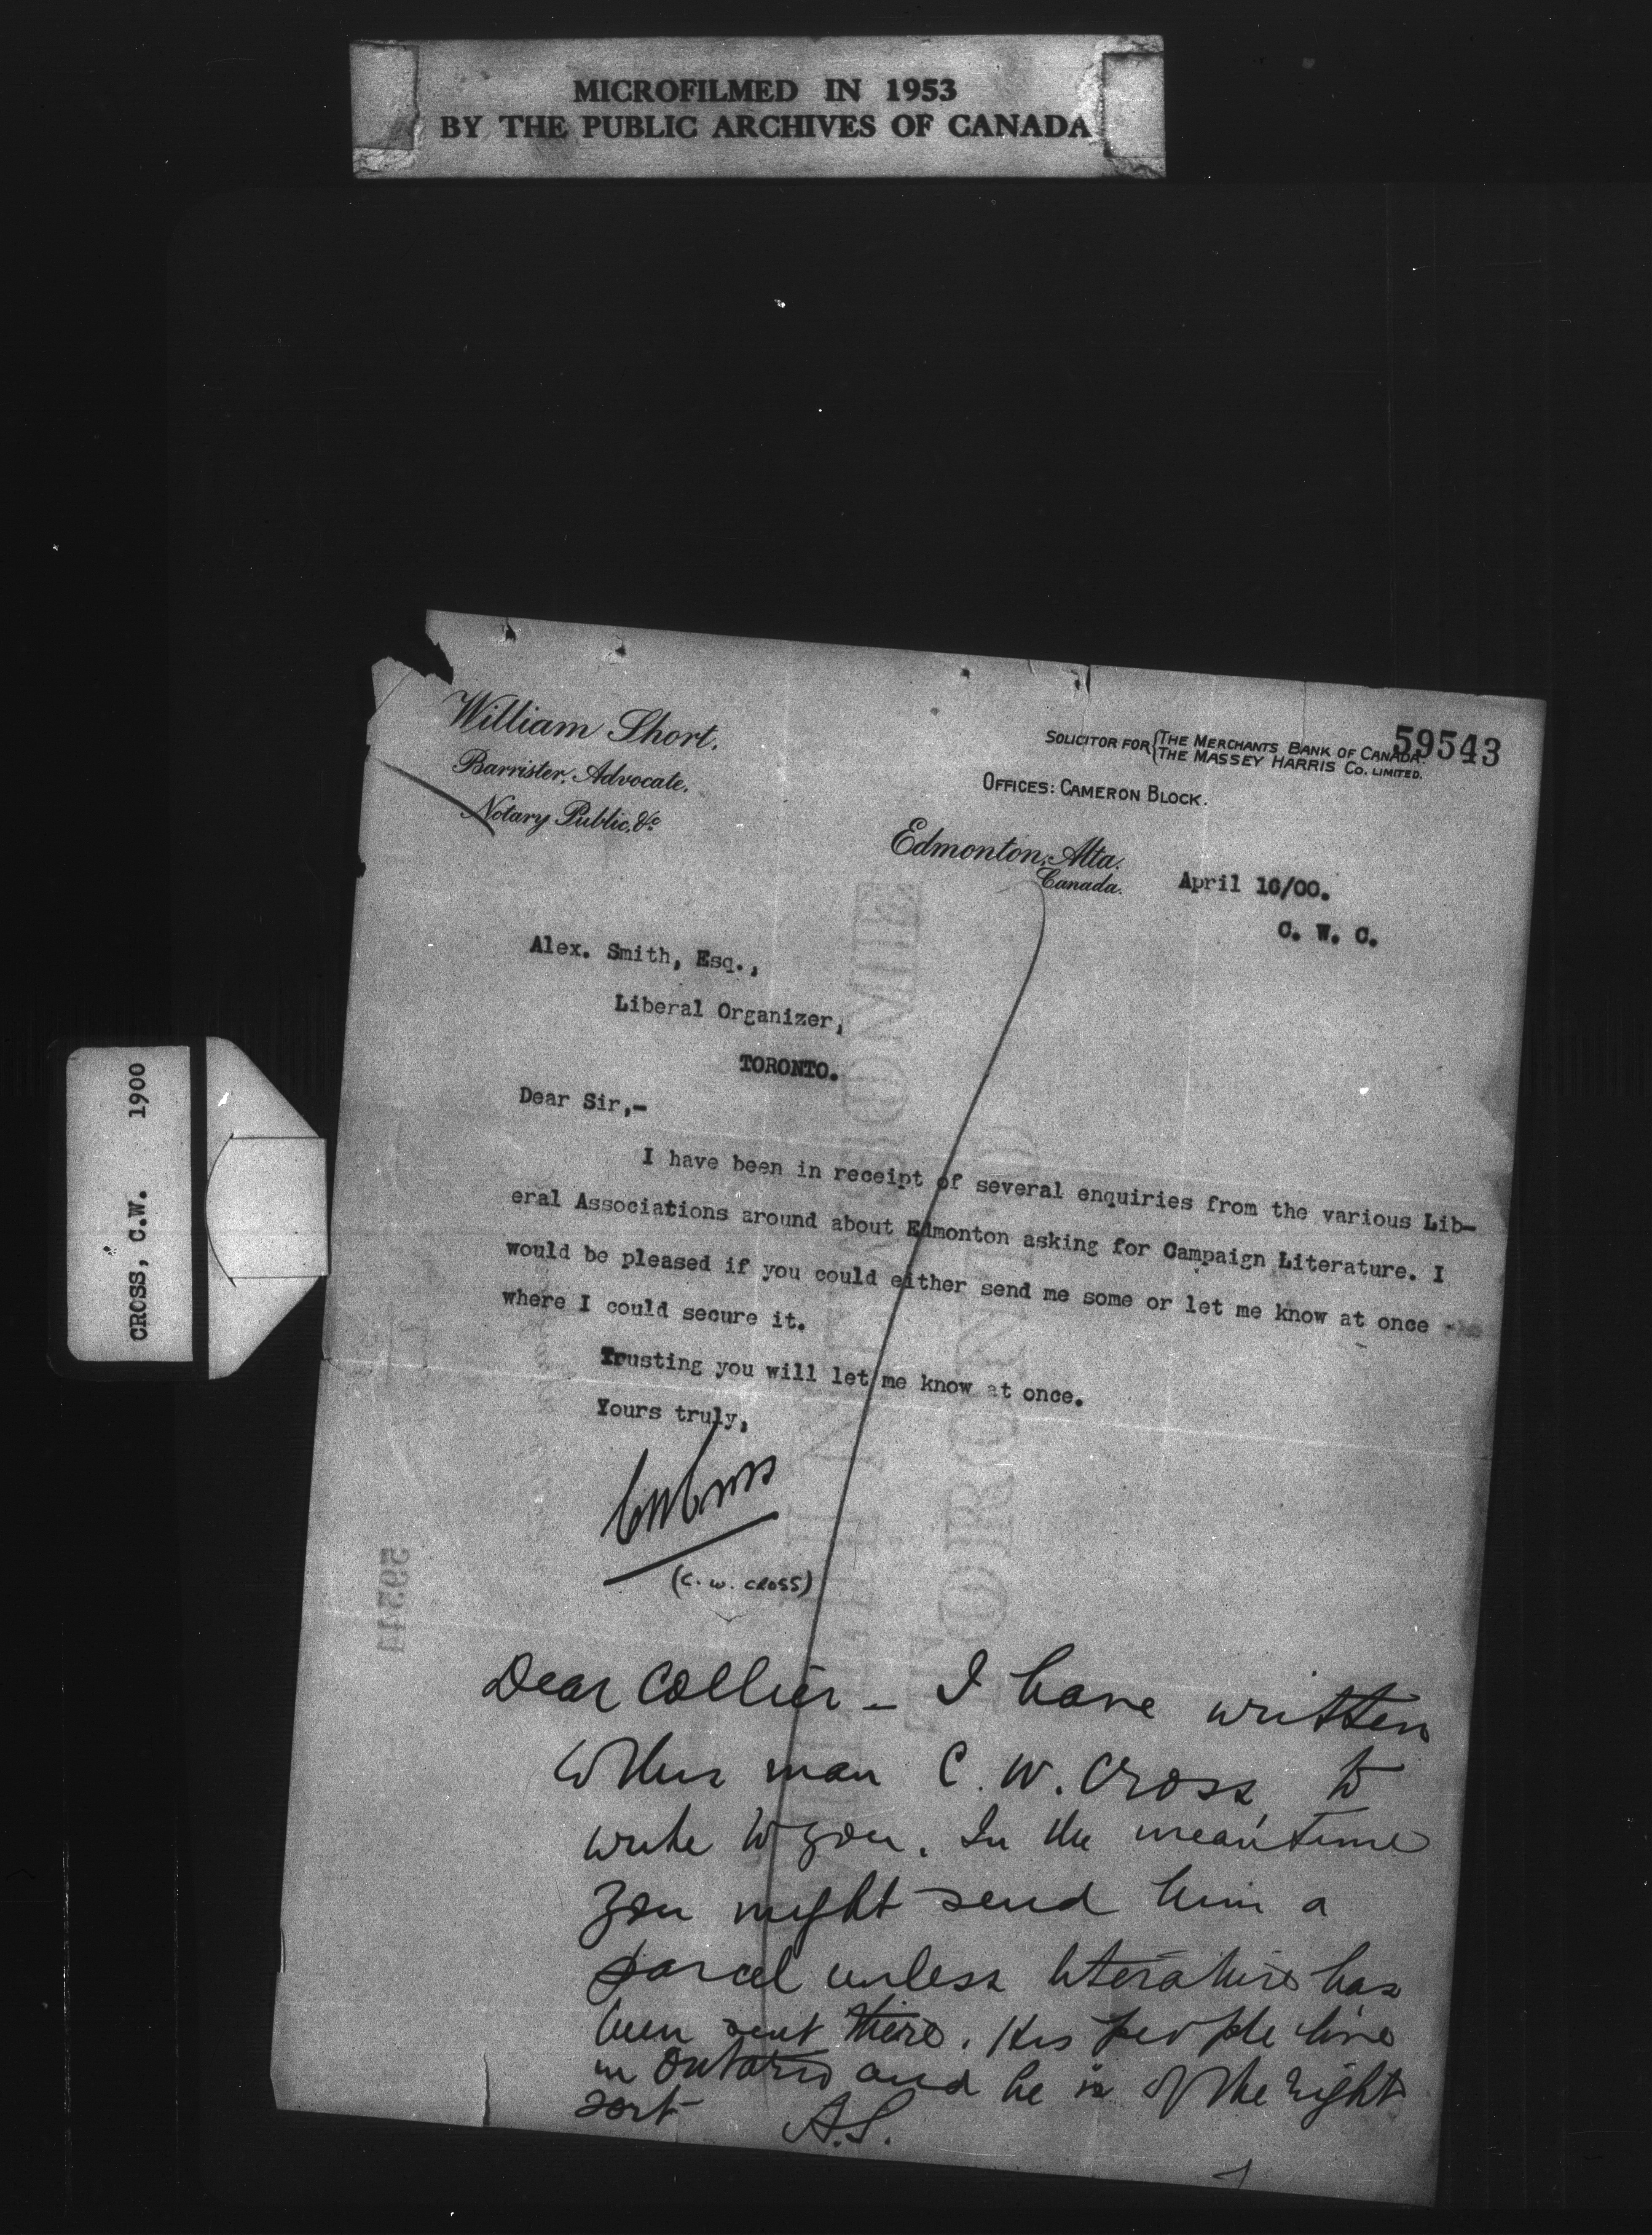 MICROFILMED IN 1953
BY THE PUBLIC ARCHIVES OF CANADA
CROSS, C.W. 1900
William Short.
Barrister, Advocate,
Notary Public, &c
SOLICITOR FOR {THE MERCHANTS BANK OF CANADA.
{THE MASSEY HARRIS CO. LIMITED.
59543
OFFICES: CAMERON BLOCK.
Edmonton, Alta.
Canada.
April 10/00.
C. W. C.
Alex. Smith, Esq.,
Liberal Organizer,
TORONTO.
Dear Sir,-
I have been in receipt of several enquiries from the various Lib-
eral Associations around about Edmonton asking for Campaign Literature. I
would be pleased if you could either send me some or let me know at once
where I could secure it.
Trusting you will let me know at once.
Yours truly,
CWCross
(C. W. CROSS)
Dear Collier - I have written
to this man C. W. Cross, to
write to you. In the meantime
you might send him a
parcel unless literature has
been sent there. His people live
in Ontario and he is of the right
sort A.S.